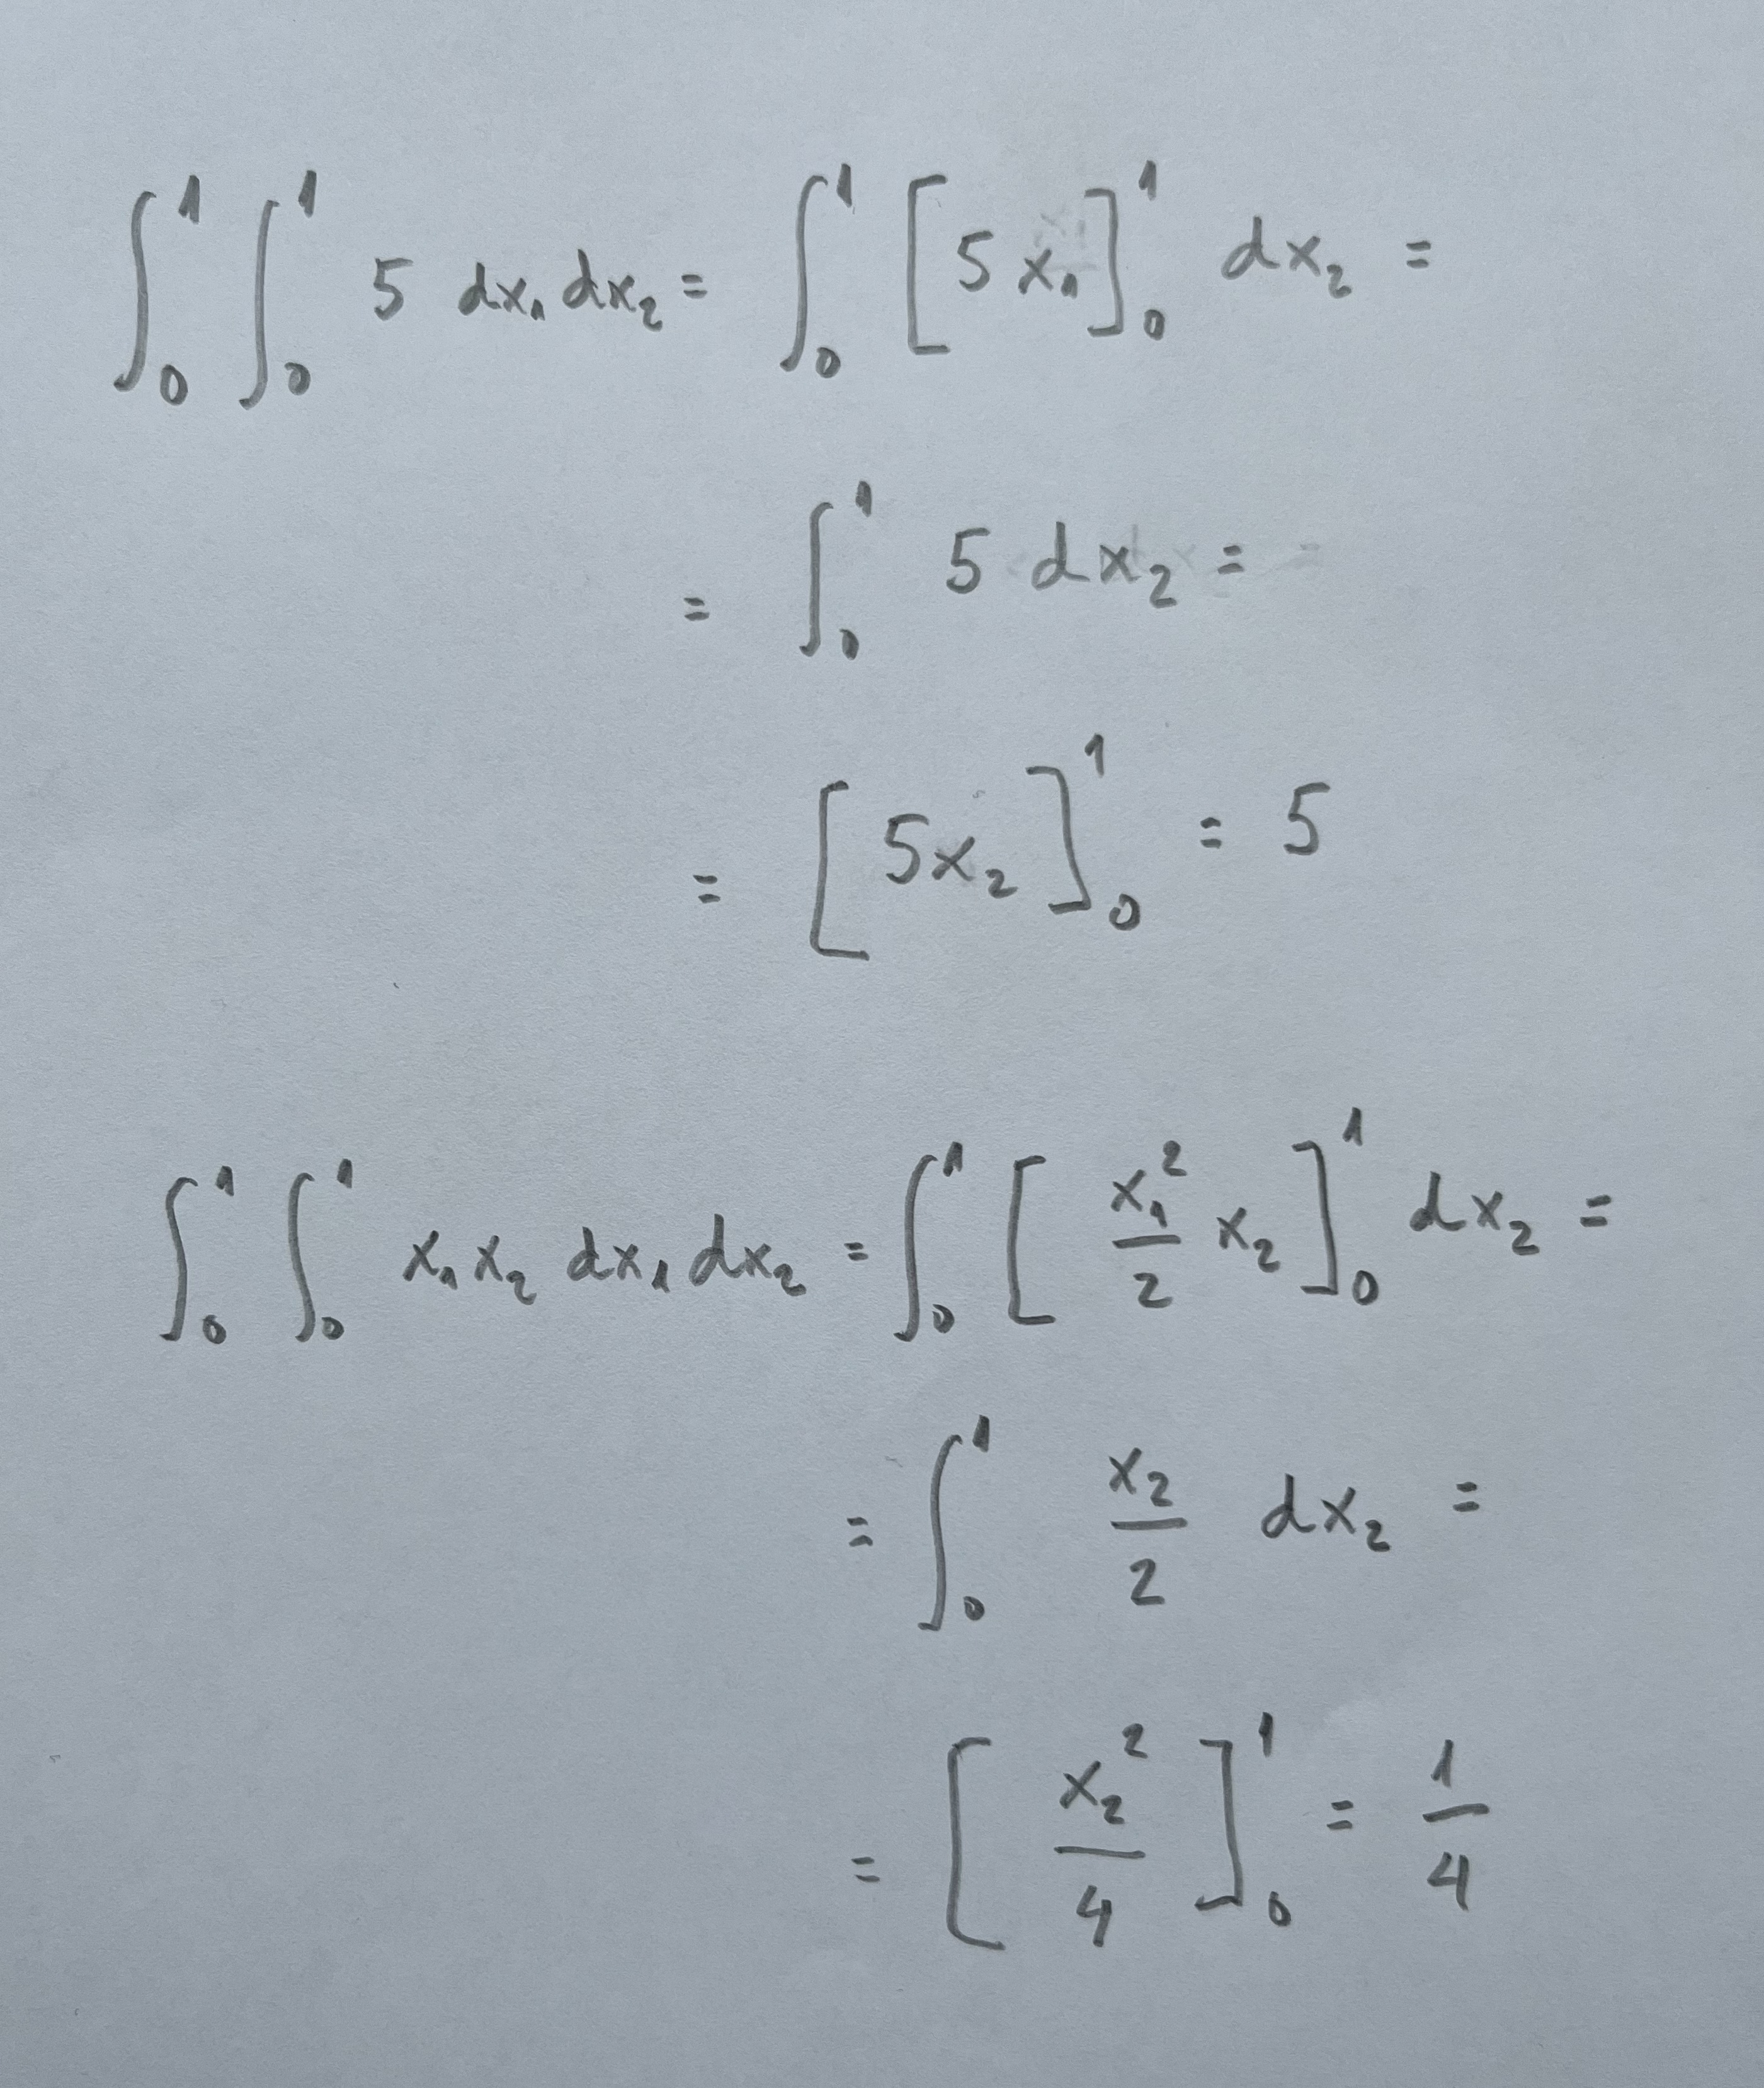 ∫₀¹ ∫₀¹ 5 dx₁ dx₂ = ∫₀¹ [5x₁]₀¹ dx₂ =
= ∫₀¹ 5 dx₂ =
= [5x₂]₀¹ = 5
∫₀¹ ∫₀¹ x₁x₂ dx₁ dx₂ = ∫₀¹ [x₁²/2 x₂]₀¹ dx₂ =
= ∫₀¹ x₂/2 dx₂ =
= [x₂²/4]₀¹ = 1/4